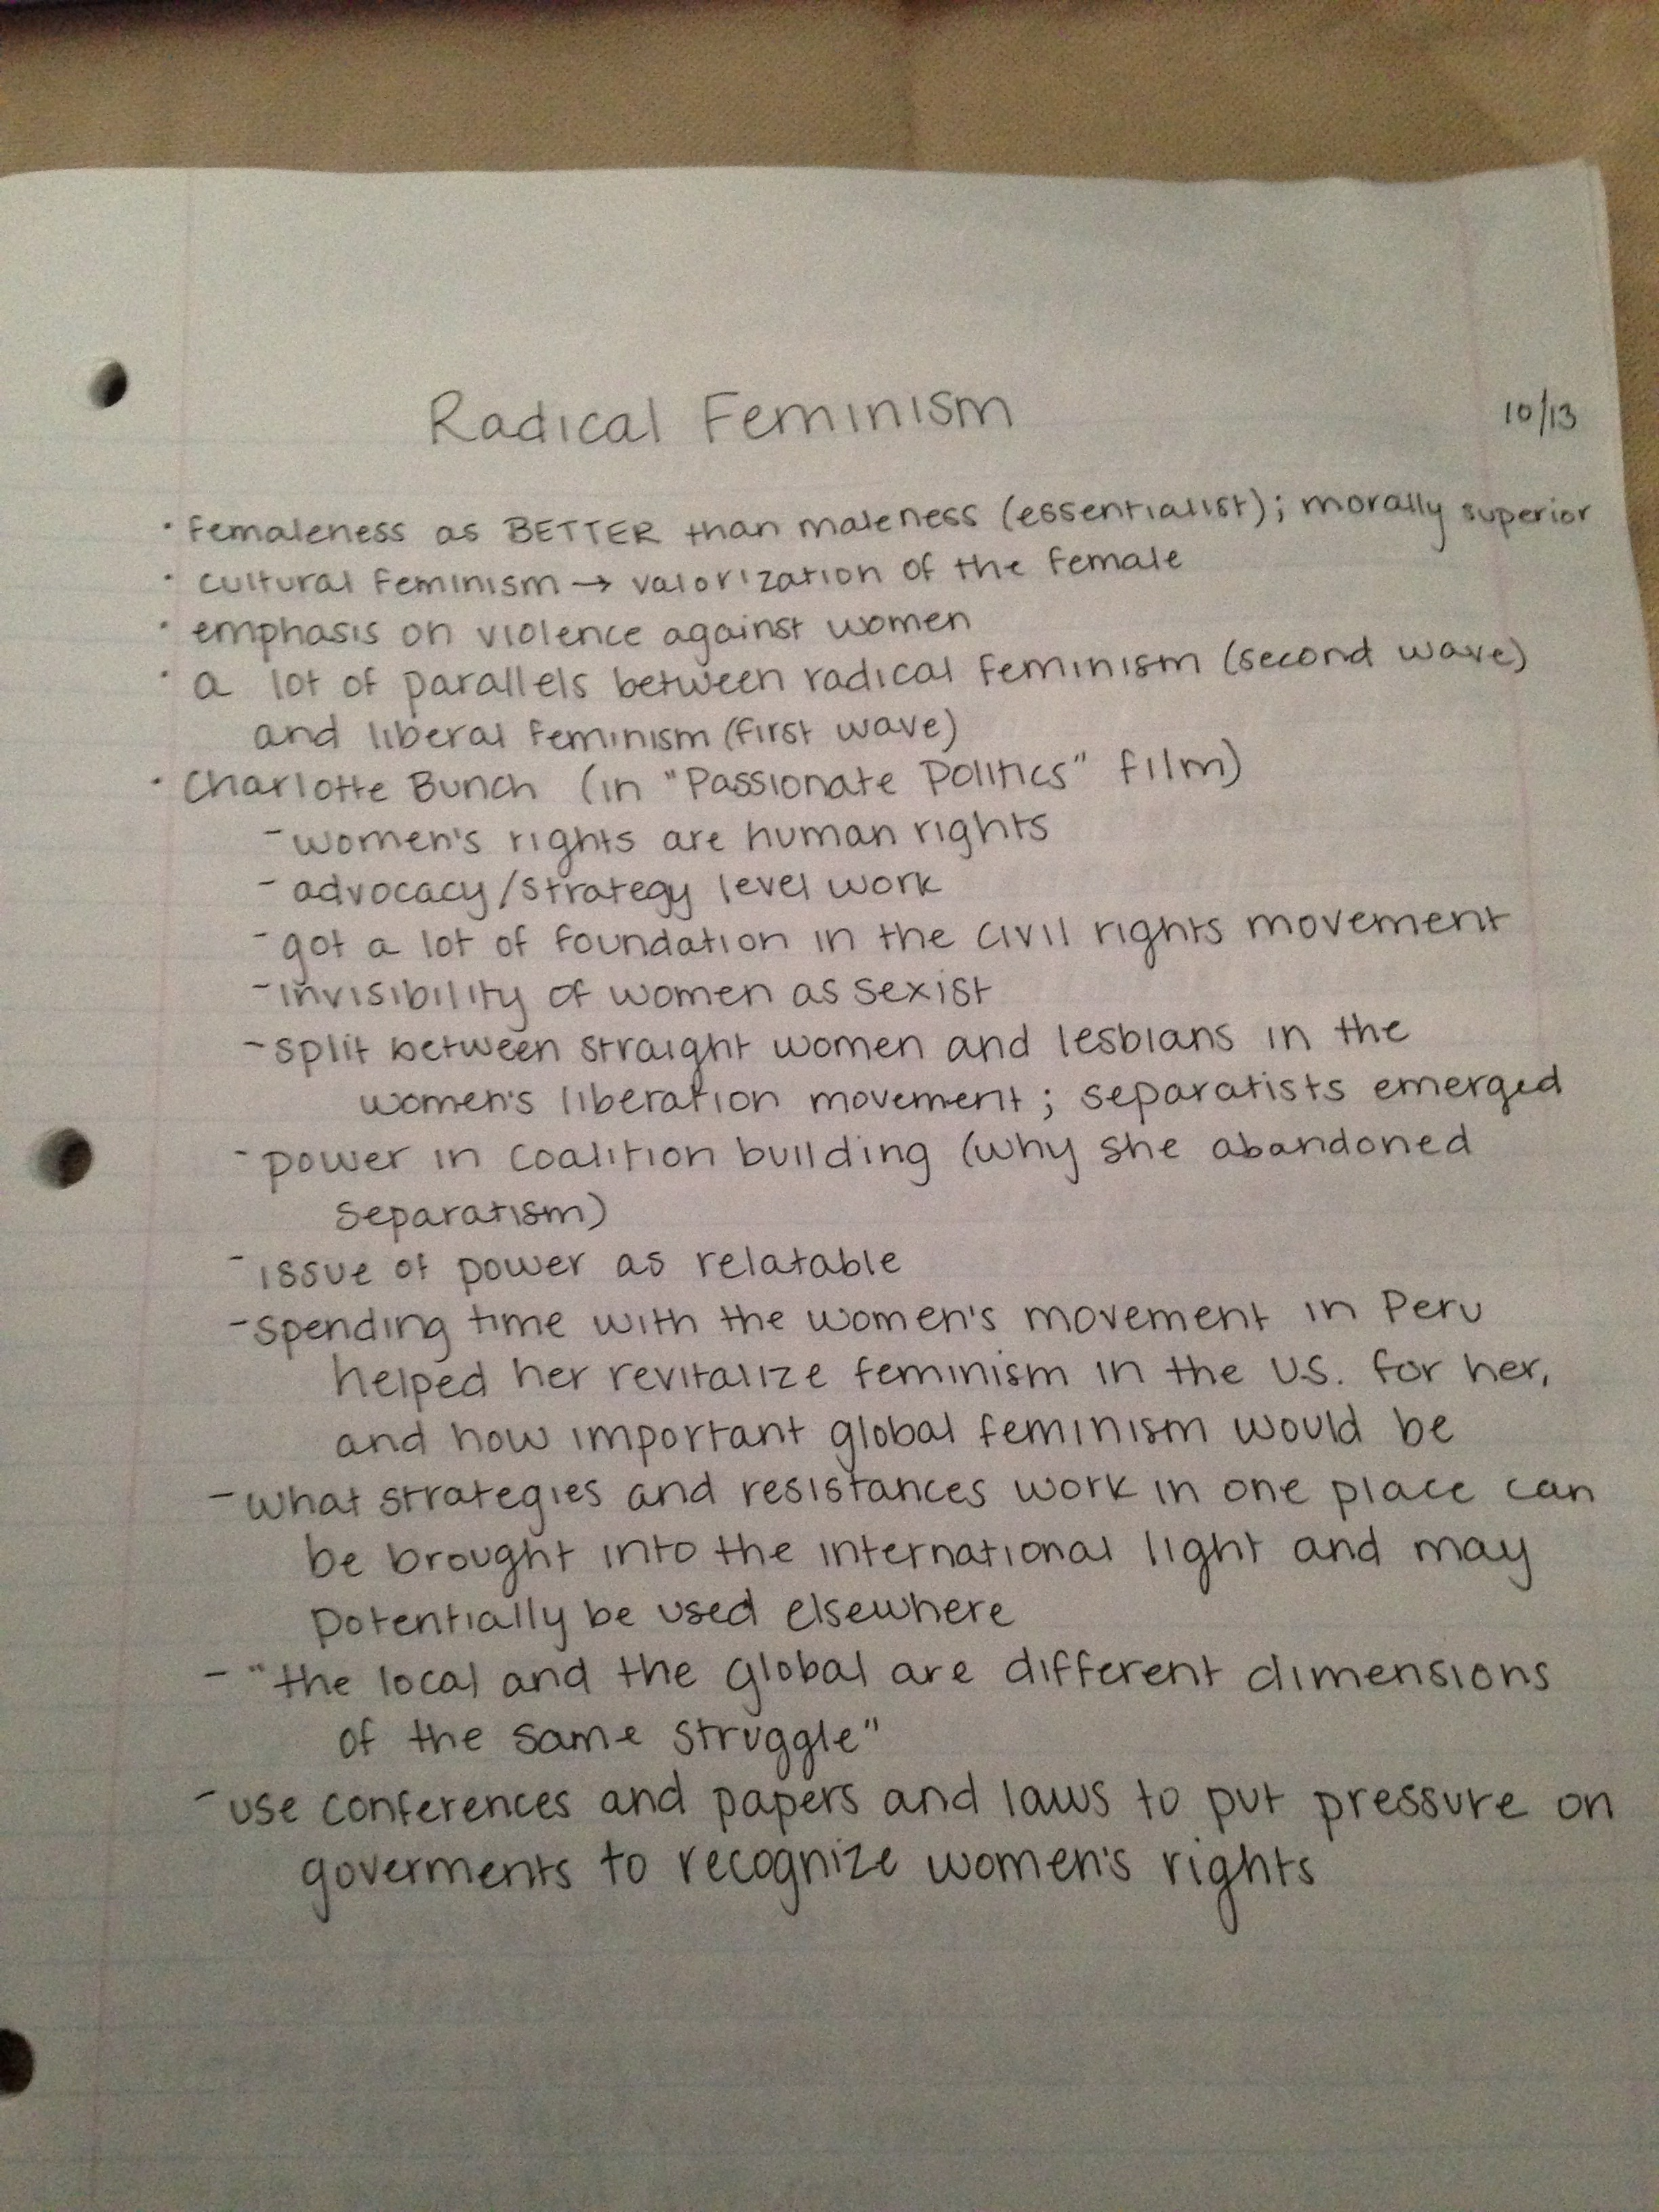 Radical Feminism 10/13
• femaleness as BETTER than maleness (essentialist); morally superior
• cultural feminism → valorization of the female
• emphasis on violence against women
• a lot of parallels between radical feminism (second wave)
and liberal feminism (first wave)
• Charlotte Bunch (in "Passionate Politics" film)
- women's rights are human rights
- advocacy/strategy level work
- got a lot of foundation in the civil rights movement
- invisibility of women as sexist
- split between straight women and lesbians in the
women's liberation movement; separatists emerged
- power in coalition building (why she abandoned
separatism)
- issue of power as relatable
- spending time with the women's movement in Peru
helped her revitalize feminism in the U.S. for her,
and how important global feminism would be
- what strategies and resistances work in one place can
be brought into the international light and may
potentially be used elsewhere
- "the local and the global are different dimensions
of the same struggle"
- use conferences and papers and laws to put pressure on
goverments to recognize women's rights